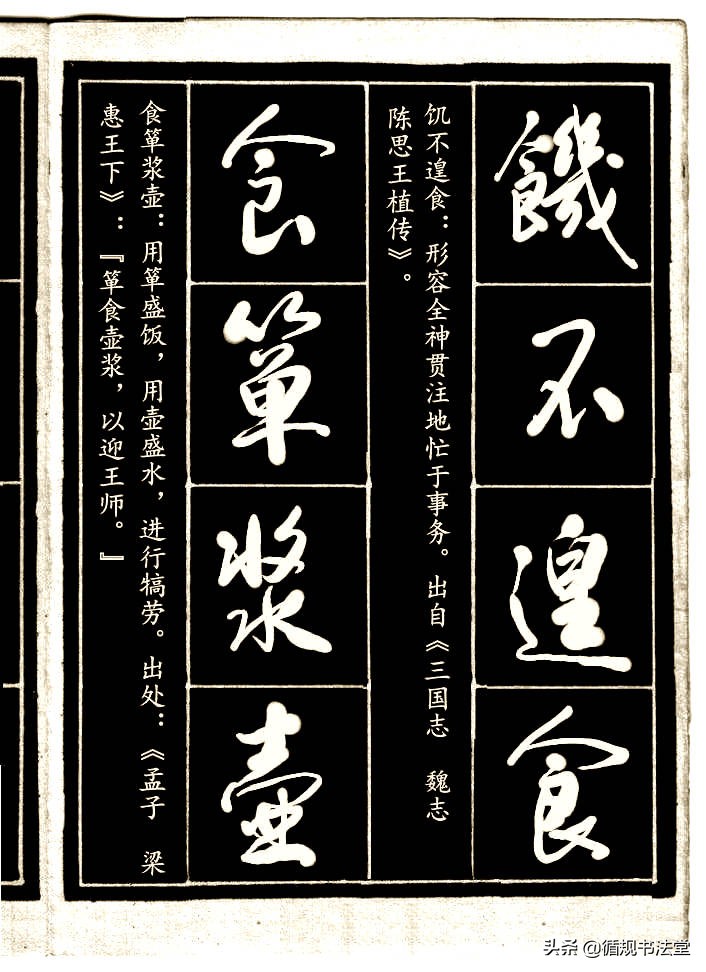 饑不遑食
饥不遑食：形容全神贯注地忙于事务。出自《三国志 魏志
陈思王植传》。
食箪漿壺
食箪浆壶：用箪盛饭，用壶盛水，进行犒劳。出处：《孟子 梁
惠王下》：『箪食壶浆，以迎王师。』
头条 @循规书法堂